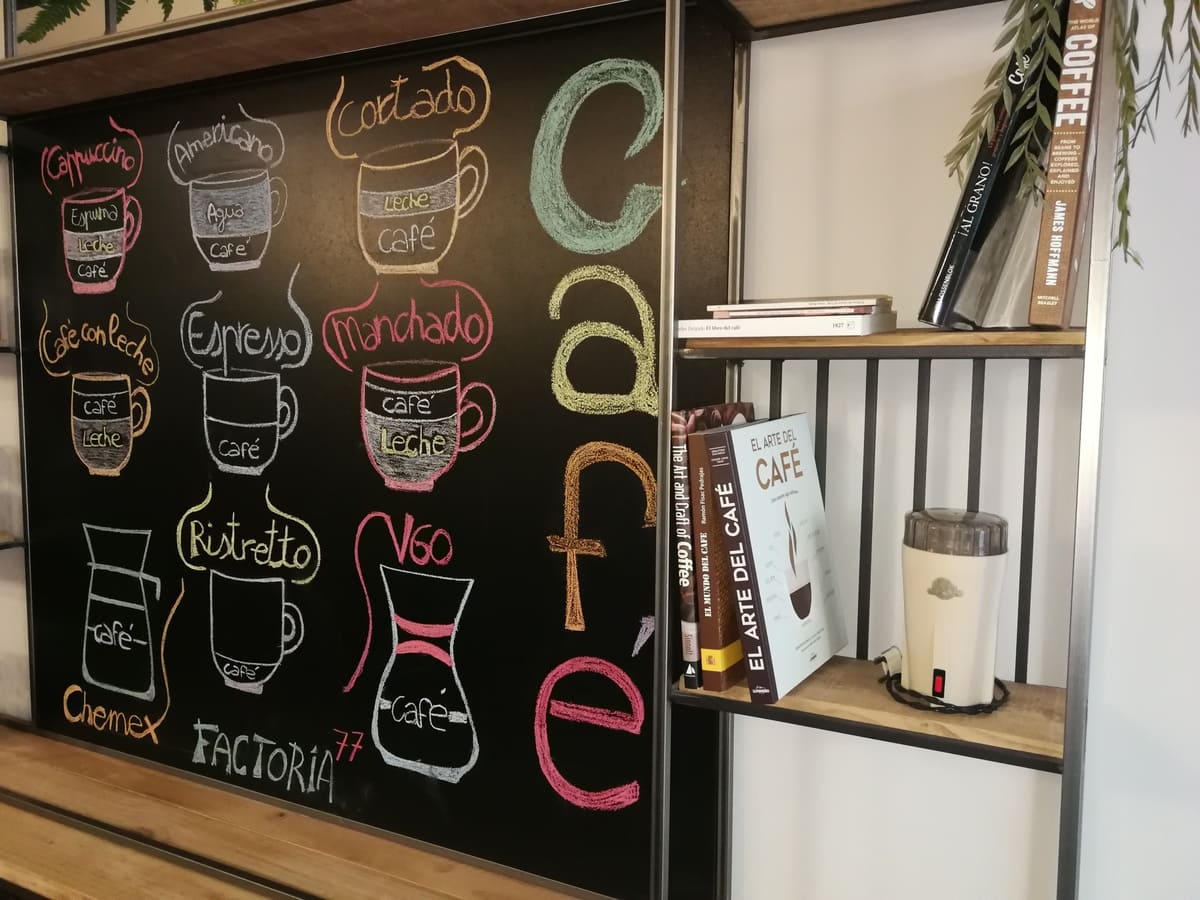 Cappuccino
Espuma
Leche
Café
Americano
Agua
Café
Cortado
Leche
Café
Café con leche
Café
Leche
Espresso
Café
Manchado
Café
Leche
Café
Chemex
Ristretto
Café
V60
Café
FACTORIA 77
Café
El libro del café
1827
¡AL GRANO!
THE WORLD
ATLAS OF
COFFEE
FROM
BEANS TO
BREWING -
COFFEES
EXPLORED,
EXPLAINED
AND
ENJOYED
JAMES HOFFMANN
MITCHELL
BEAZLEY
The Art and Craft of Coffee
Sinnott
EL MUNDO DEL CAFÉ
Ramón Fisac Pedrajas
EL ARTE DEL CAFÉ
EL ARTE DEL
CAFÉ